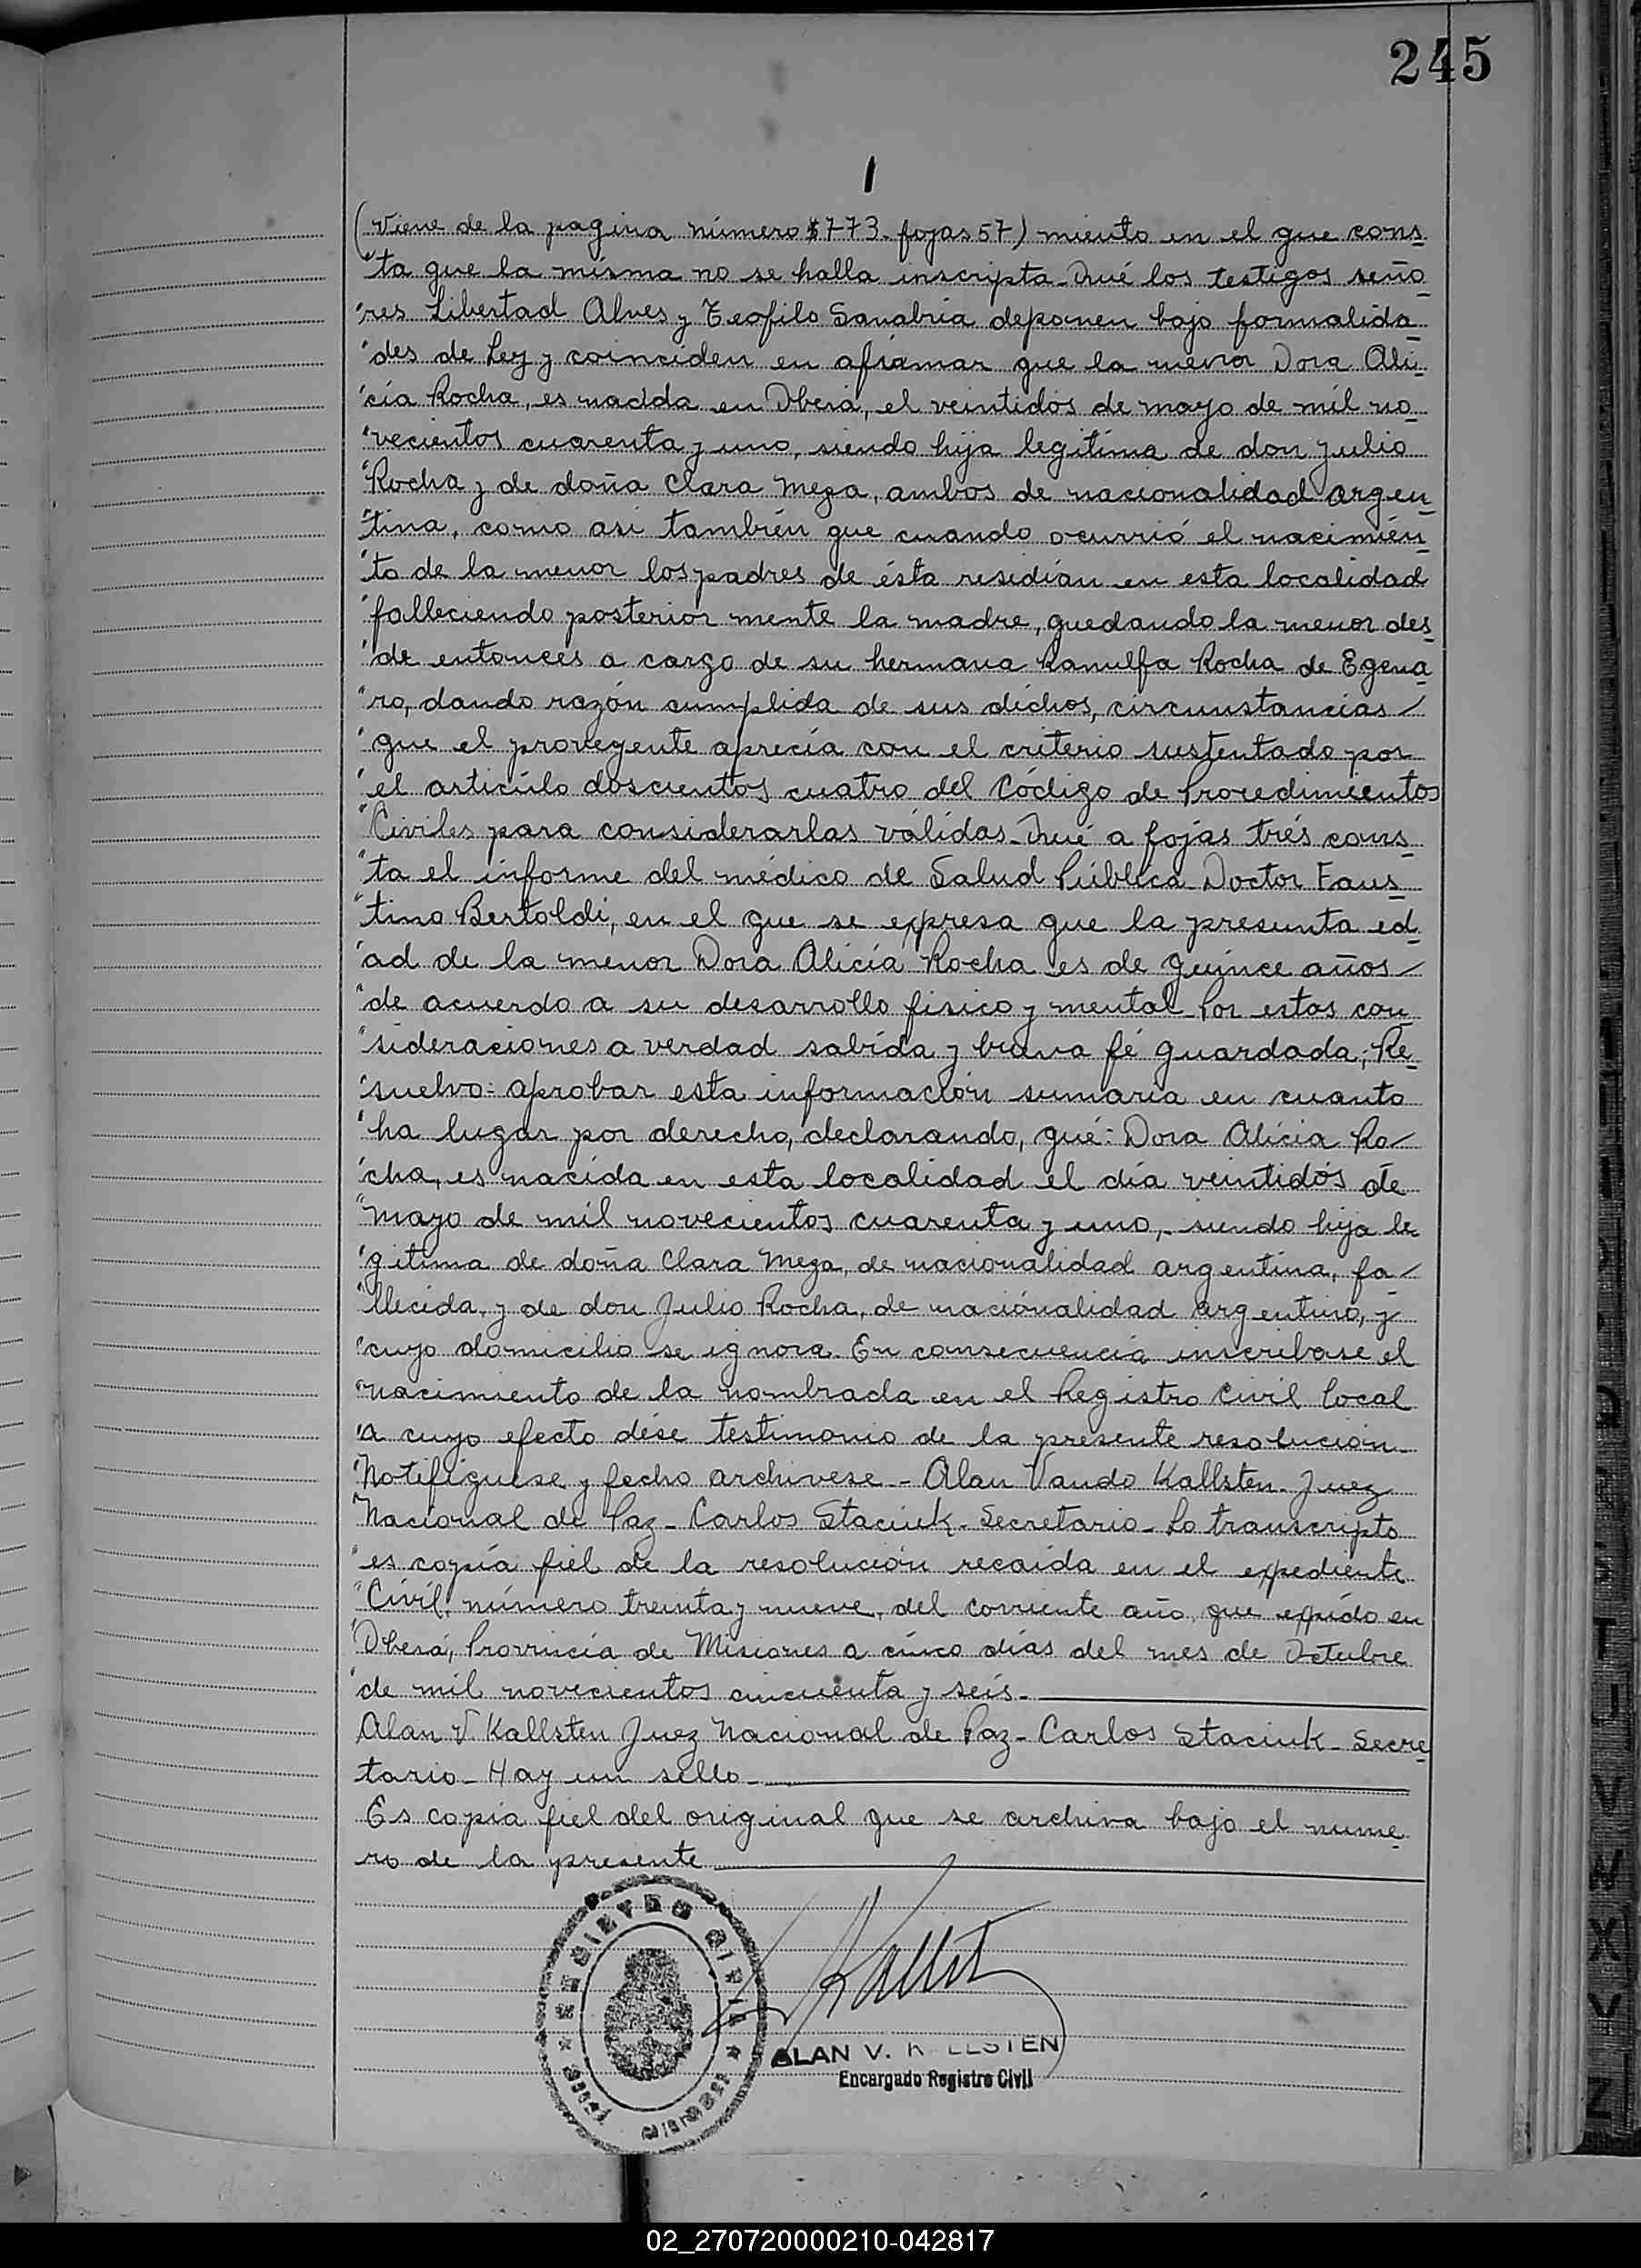 245
1
(Viene de la pagina número $773. fojas 57) miento en el que cons
"ta que la misma no se halla inscripta_Qué los testigos seño
"res Libertad Alves y Teofilo Sanabria deponen bajo formalida
"des de Ley y coinciden en afirmar que la menor Dora Ali
"cia Rocha, es nacida en Oberá, el veintidos de mayo de mil no
"vecientos cuarenta y uno, siendo hija legitima de don Julio
"Rocha y de doña Clara Meza, ambos de nacionalidad argen
"tina, como asi también que cuando ocurrió el nacimien
"to de la menor los padres de ésta residian en esta localidad
"falleciendo posterior mente la madre, quedando la menor des
"de entonces a cargo de su hermana Ranulfa Rocha de Egena
"ro, dando razón cumplida de sus dichos, circunstancias/
"que el proveyente aprecia con el criterio sustentado por
"el artículo doscientos cuatro del Código de Procedimientos
"Civiles para considerarlas válidas_Qué a fojas trés cons
"ta el informe del médico de Salud Pública Doctor Faus
"tino Bertoldi, en el que se expresa que la presunta ed
"ad de la menor Dora Alicia Rocha es de quince años/
"de acuerdo a su desarrollo fisico y mental_Por estas con
"sideraciones a verdad sabida y buena fé guardada; Re
"suelvo: aprobar esta información sumaria en cuanto
"ha lugar por derecho, declarando, qué: Dora Alicia Ro/
"cha, es nacida en esta localidad el día veintidós de
"mayo de mil novecientos cuarenta y uno, siendo hija le
"gitima de doña Clara Meza, de nacionalidad argentina, fa/
"llecida, y de don Julio Rocha, de nacionalidad argentino, y
"cuyo domicilio se ignora. En consecuencia inscribase el
"nacimiento de la nombrada en el Registro Civil local
"a cuyo efecto dése testimonio de la presente resolución_
"Notifiquese y fecho archivese_-Alan Vando Kallsten. Juez
"Nacional de Paz_Carlos Staciuk_Secretario_Lo transcripto
"es copia fiel de la resolución recaída en el expediente
"Civil, número treinta y nueve, del corriente año, que expido en
"Oberá, Provincia de Misiones a cinco días del mes de Octubre
"de mil novecientos cincuenta y seis._
Alan V. Kallsten Juez Nacional de Paz_Carlos Staciuk_Secre
tario_Hay un sello_
Es copia fiel del original que se archiva bajo el nume
ro de la presente
REGISTRO CIVIL
ALAN V. KALLSTEN
Encargado Registro Civil
02_270720000210-042817